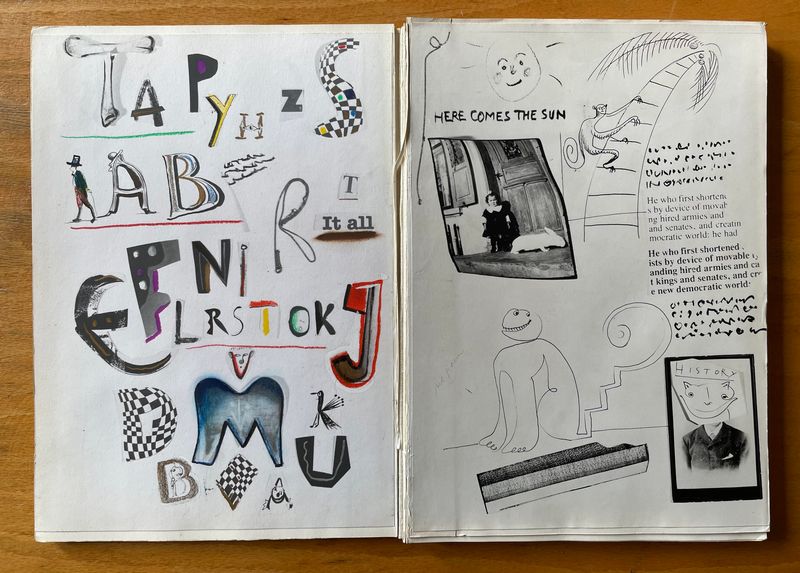 TAPYHZS
AB
R
T
It all
FNI
E
LRSTIOKJ
DMK
B
AU
HERE COMES THE SUN
He who first shortene
s by device of movab
ng hired armies and
and senates, and creatin
mocratic world: he had
He who first shortened
ists by device of movable
anding hired armies and ca
t kings and senates, and cr
e new democratic world:
HISTORY